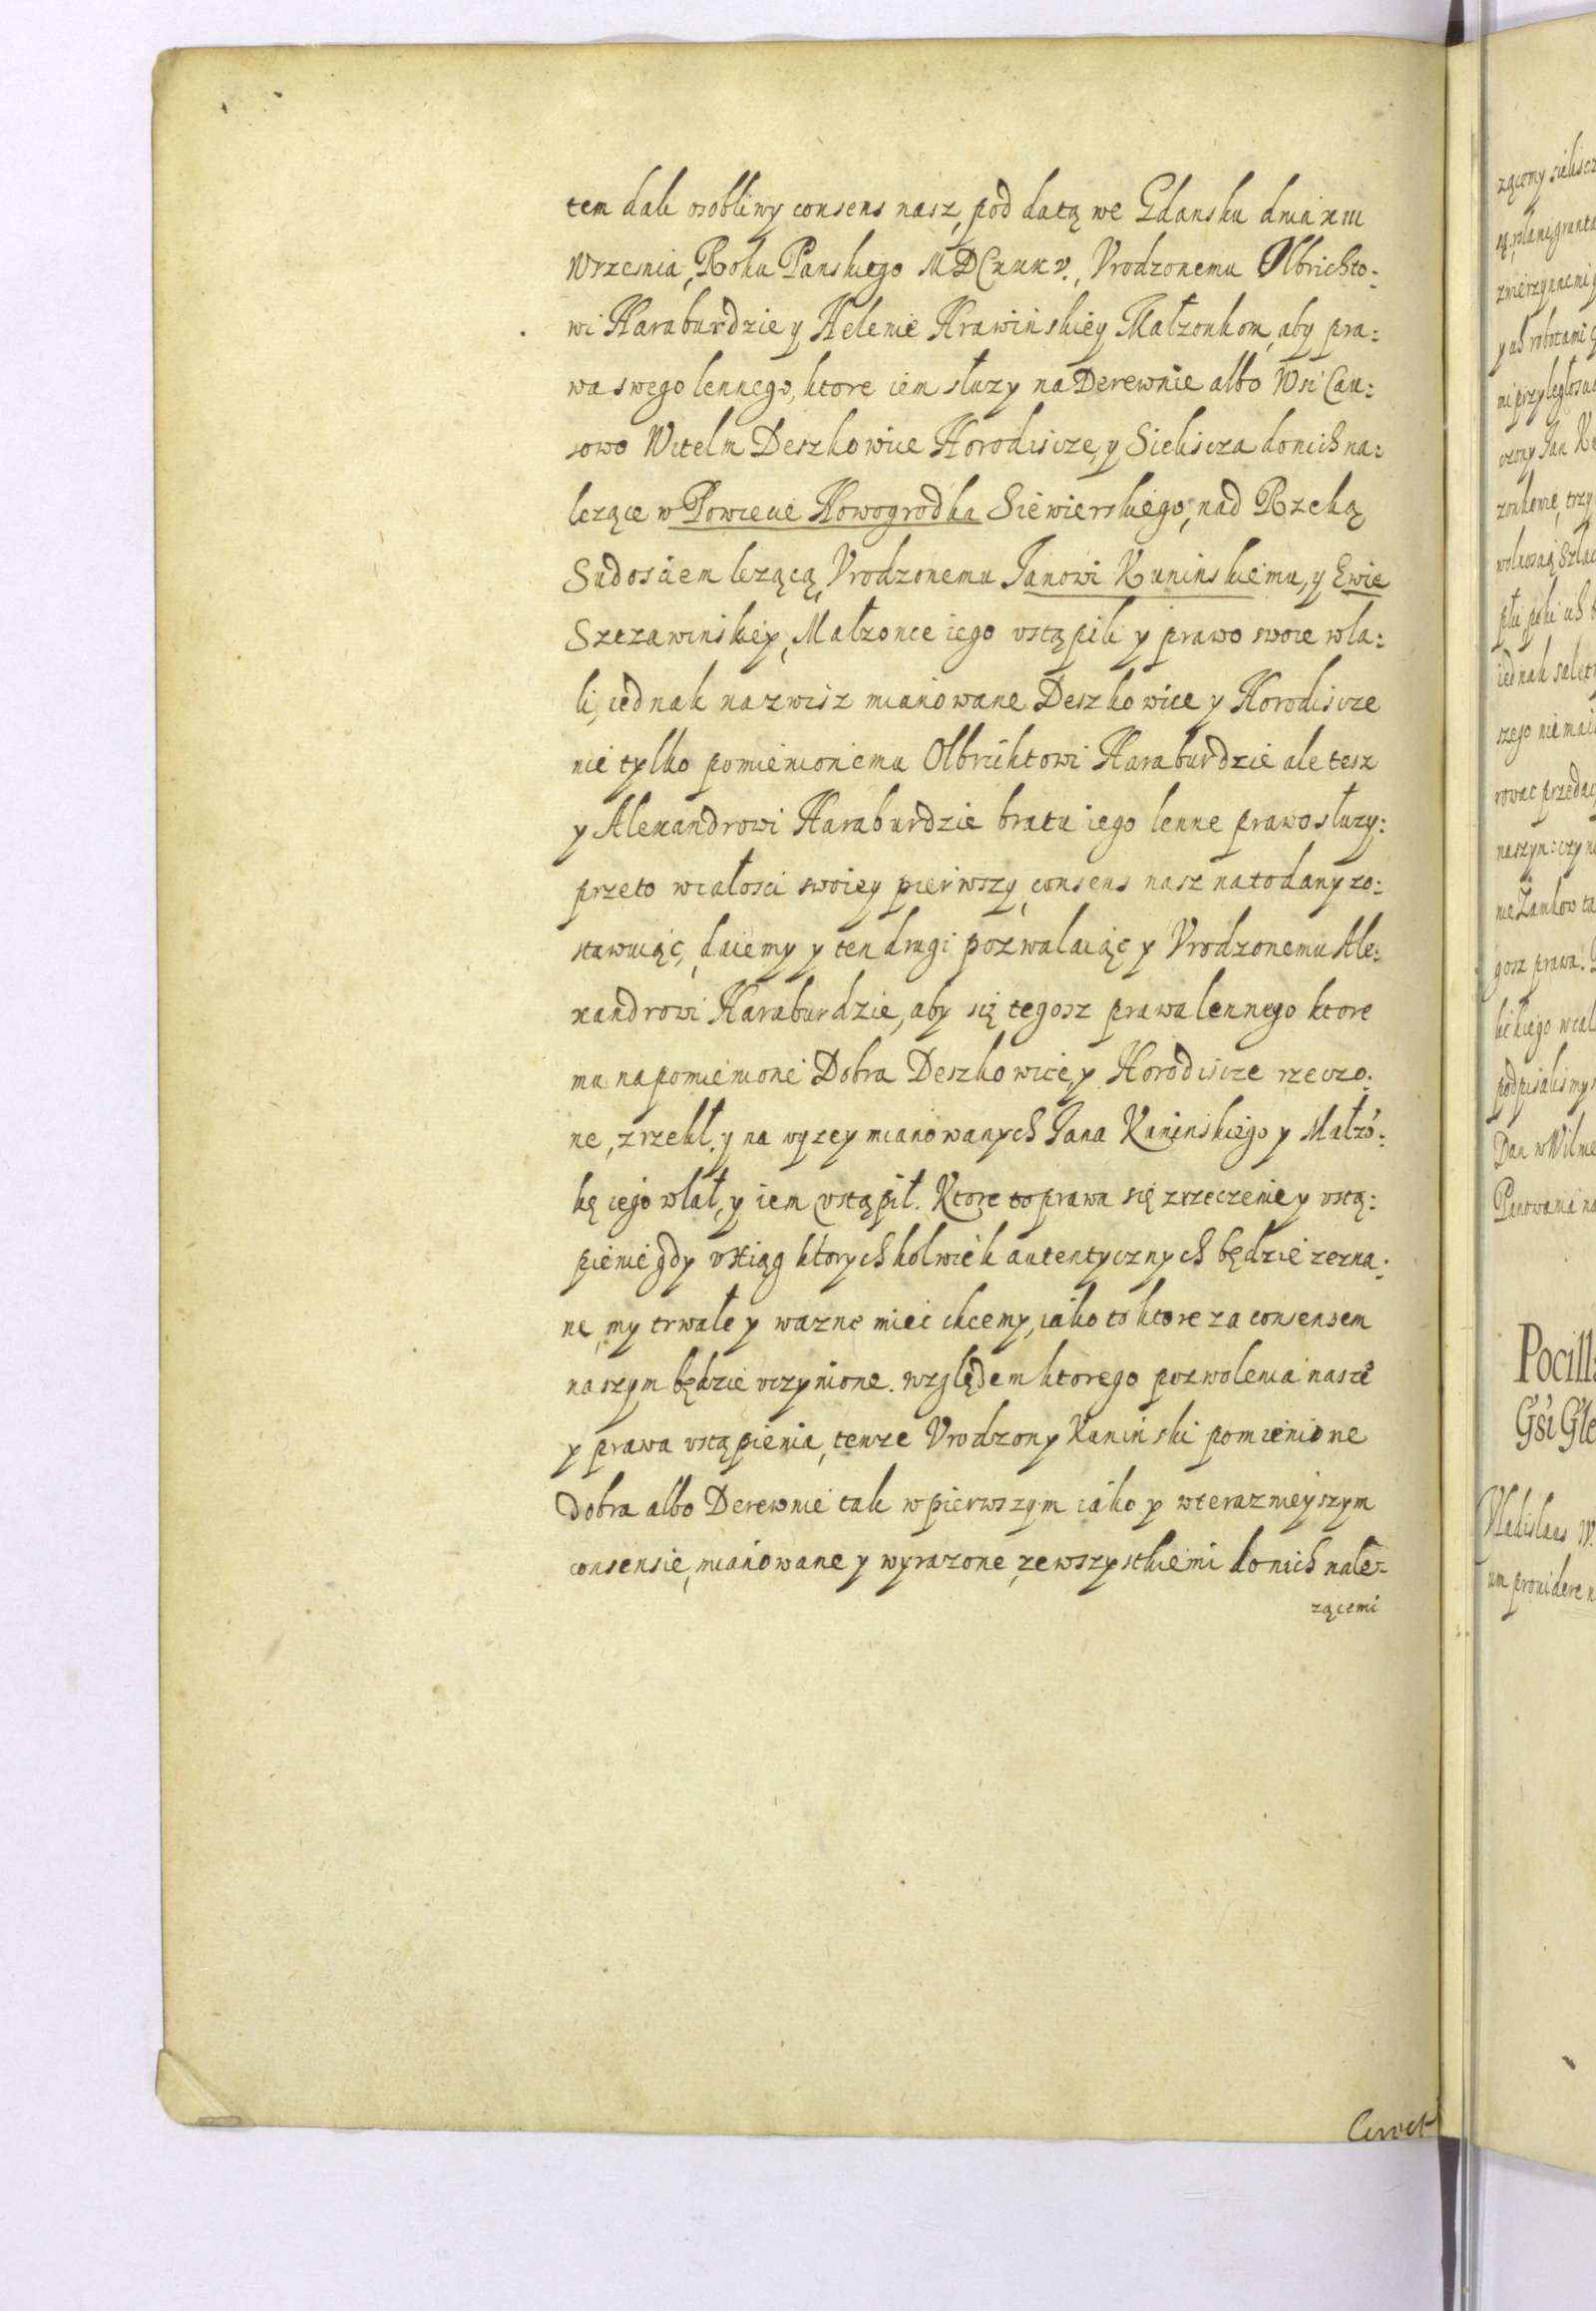 tem dali osobliwy consens nasz, pod datą we Gdansku dnia xiii
Wrzesnia, Roku Panskiego MDCxxxv., Vrodzonemu Olbrichto-
wi Haraburdzie y Helenie Krawinskiey Małzonkom, aby pra:
wa swego lennego, ktore iem słuzy na Derewnie albo Wsi Cau:
sowo Witelm Deszkowice Horodiscze, y Sieliscza do nich na:
lezące w Powiecie Nowogrodka Siewierskiego, nad Rzeką
Sudosciem lezącą, Vrodzonemu Janowi Kuninskiemu, y Ewie
Szczawinskiey, Małzonce iego vstąpili y prawo swoie wla:
li, iednak na zwisz mianowane Deszkowice y Horodiscze
nie tylko pomienionemu Olbrichtowi Haraburdzie ale tesz
y Alexandrowi Haraburdzie bratu iego lenne prawo słuzy:
przeto wcałosci swoiey pierwszy, consens nasz na to dany zo:
stawuiąc, daiemy y ten drugi pozwalaiąc y Vrodzonemu Ale:
xandrowi Haraburdzie, aby się tegosz prawa lennego ktore
mu na pomienione Dobra Deszkowice, y Horodiscze rzeczo:
ne, zrzekł, y na wyzey mianowanych Jana Kaninskiego y Małzo:
kę iego wlał, y iem vstąpił. Ktore to prawa się zrzeczenie y vstą:
pienie gdy v Xiąg ktorychkolwiek autentycznych będzie zezna:
ne, my trwałe y wazne miec chcemy, iako to ktore za consensem
naszym będzie vczynione. względem ktorego pozwolenia nasze
y prawa vstąpienia, tenze Vrodzony Kaninski pomienione
Dobra albo Derewnie tak w pierwszym iako y wteraznieyszym
consensie, mianowane y wyrazone, ze wszystkiemi do nich nale-
zącemi